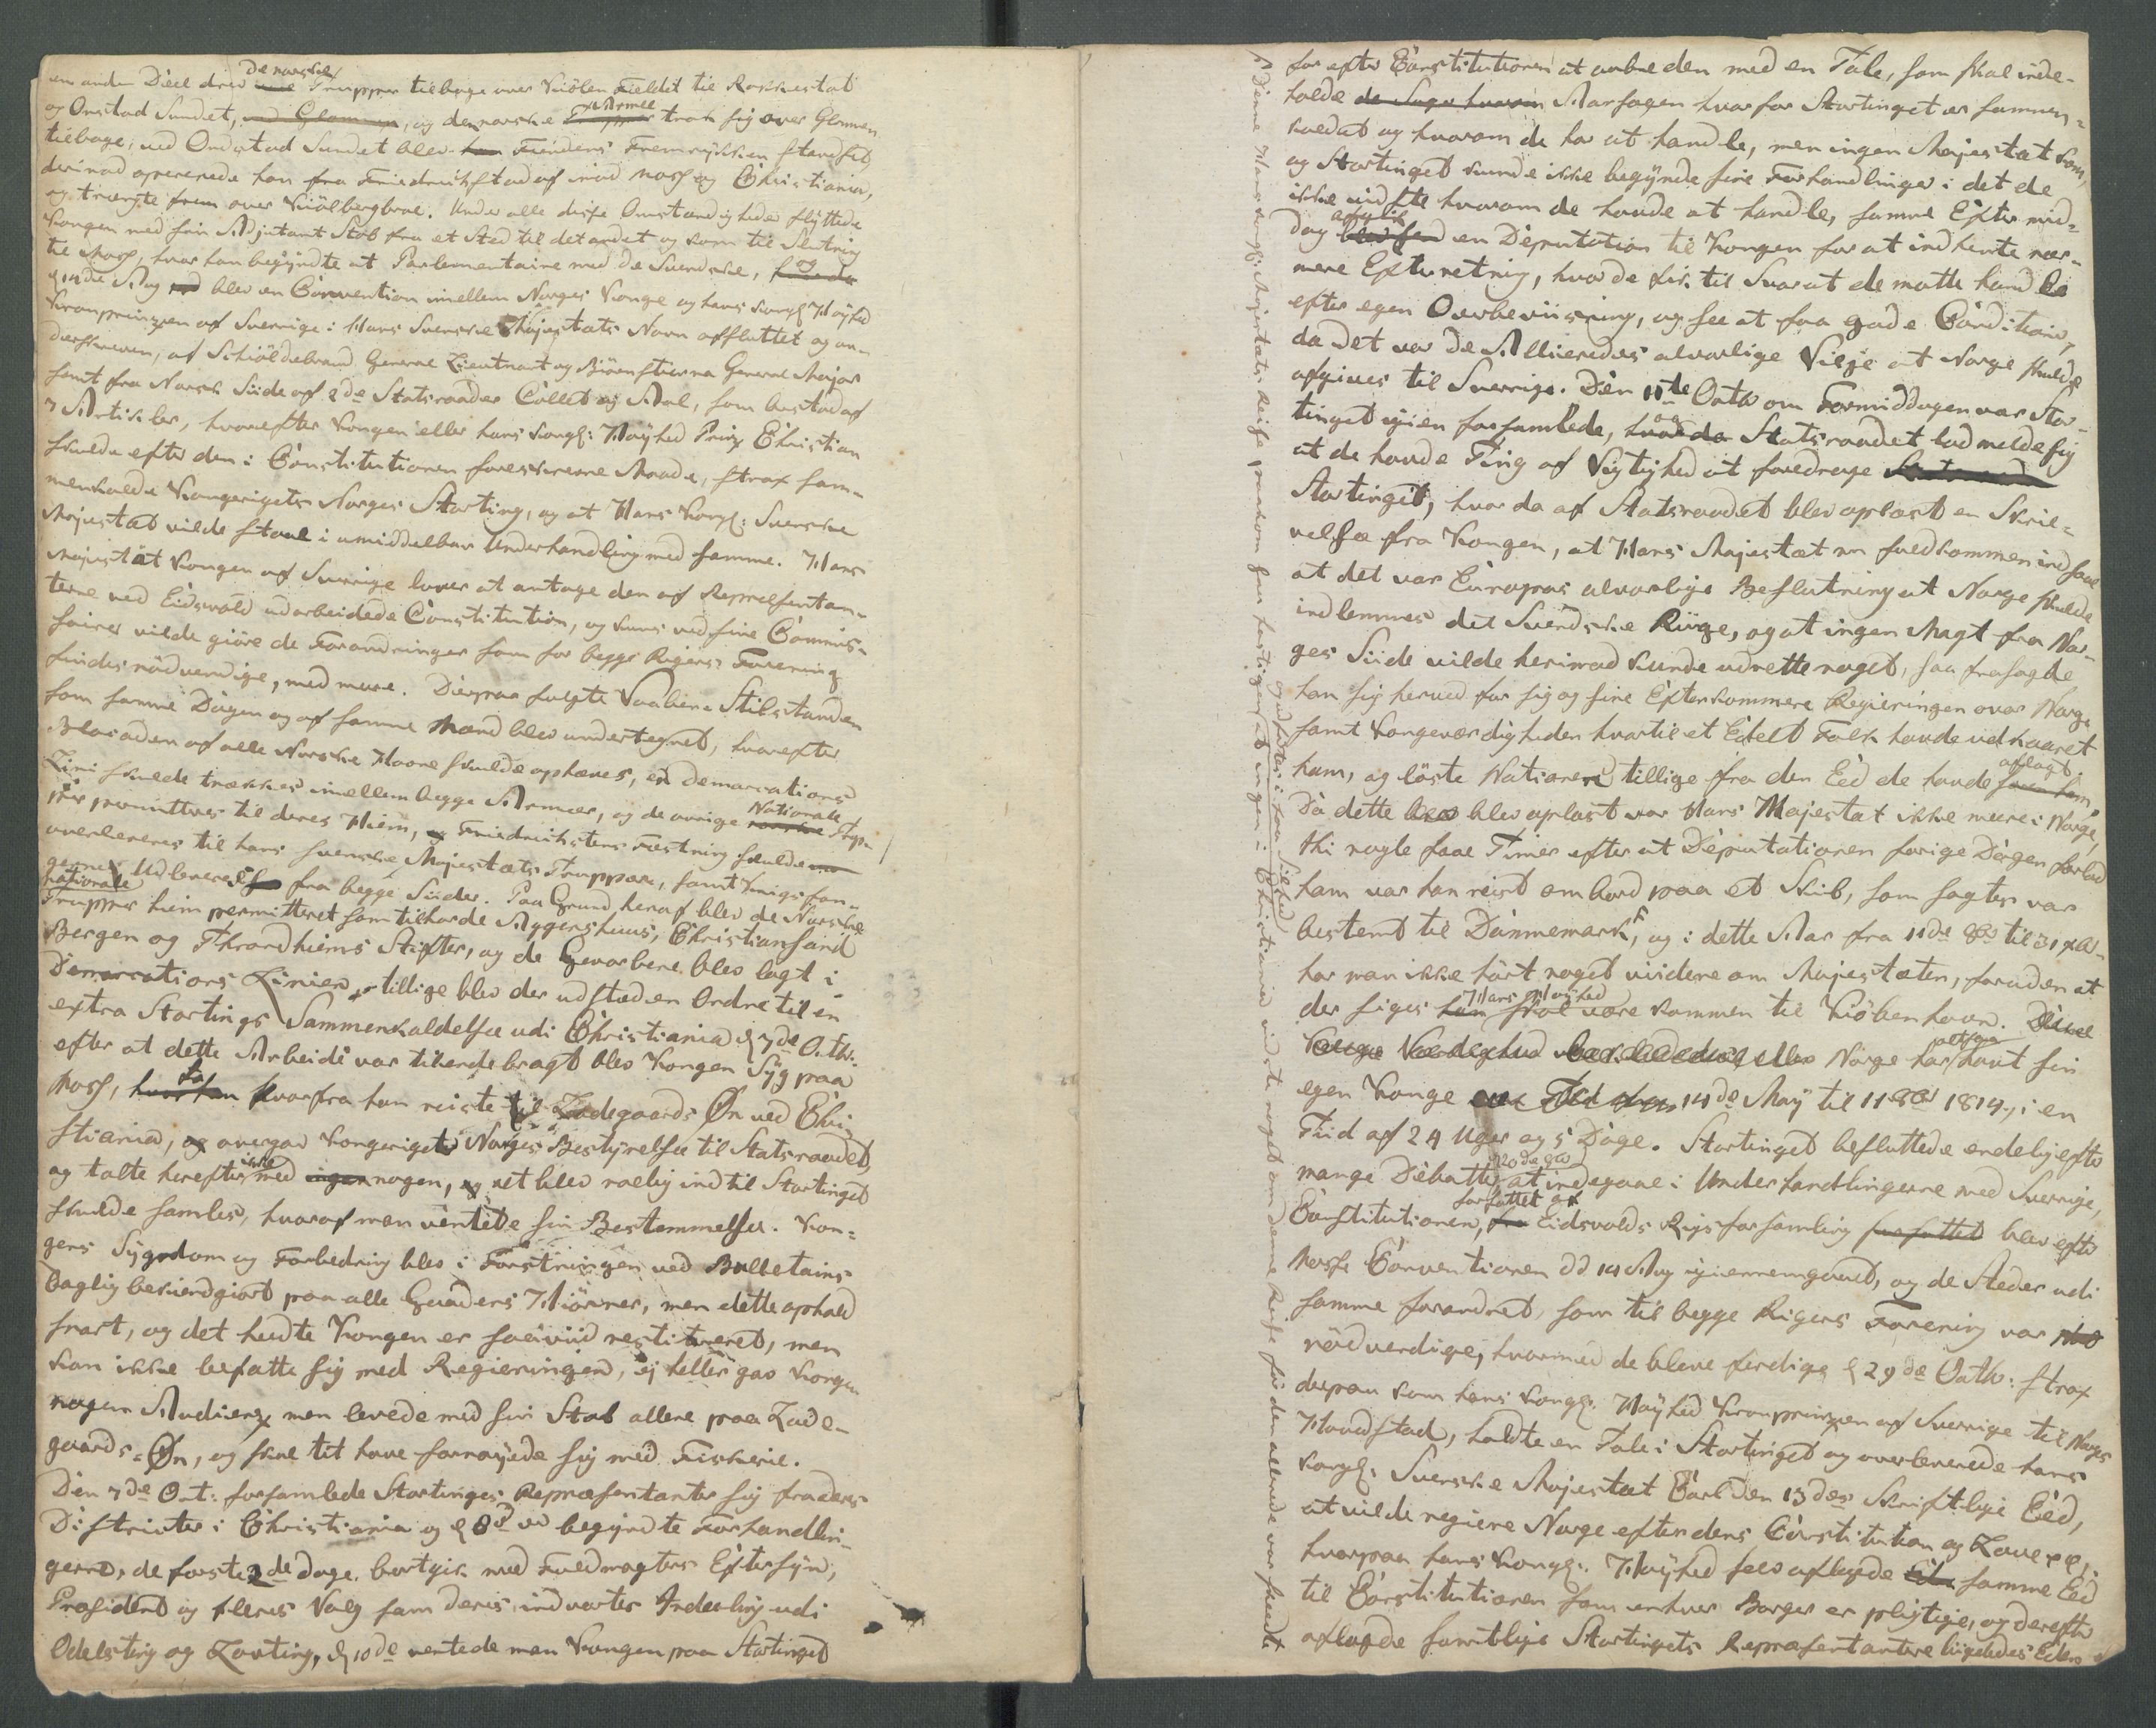 en anden Deel drev de norske Trupper tilbage over Kiölen Fieldet til Rakkestad
og Onstad Sundet, ved Glommen, og den norske Armee trak sig over Glommen
tilbage, ved Onstad Sundet blev Fiendens Fremrykken standset,
derimod opererede han fra Friedrichstad af imod Moss og Christiania,
og trængte frem over Kiölbergbroe. Under alle disse Omstændigheder flyttede
Kongen med sin Adjutant Stab fra et Sted til det andet og kom til Slutning
til Moss, hvor han begyndte at Parlementaire med de Svendske, og
d 14de Aug blev en Convention imellem Norges Konge og hans Kongl: Höyhed
Kronprinzen af Sverrige i Hans Svenske Majestæts Navn affluttet og un-
derskreven, af Schiöldebrand General Lieutnant og Biörnstierna General Major
samt fra Norsk Siide af 2de Statsraader Collet og Aal, som bestod af
7 Artikler, hvorefter Kongen eller hans Kongl: Höyhed Prinz Christian
skulde efter den i Constitutionen foreskrevne Maade, strax sam-
menkalde Kongerigets Norges Storting, og at Hans Kongl: Svenske
Majestæt vilde staae i umiddelbar Underhandling med samme. Hans
Majestæt Kongen af Sverrige lover at antage den af Repræsentan-
terne ved Eidsvold udarbeidede Constitution, og kuns ved sine Commis-
sairer vilde giöre de Forandringer som for begge Rigers Forening
findes nödvendige, med mere. Derpaa fulgte Vaaben Stilstanden
som samme Dagen og af samme Mænd blev undertegnet, hvorefter
Blocaden af alle Norske Havne skulde ophæves, en Demarcations
Linie skulde trækkes imellem begge Armeer, og de övrige Nationale Trop-
per permitteres til deres Hiem, Friedrichstens Fæstning skulde
overleveres til hans Svenske Majestæts Troppere, samt Krigsfan-
gerne Udleveres fra begge Siider. Paa Grund heraf blev de Norske
nationale Trupper hiem permitteret som tilhörde Aggershuus, Christiansand
Bergen og Throndhiems Stifter, og de Gevorbene blev lagt i
Demarcations Linien, tillige blev der udstæden Ordre til en
extra Stortings Sammenkaldelse udi Christiania d 7de Octb:
efter at dette Arbeide var tilende bragt blev Kongen Syg paa
Moss, hvorfra han reiste til Ladegaards Øn ved Chri-
stiania, overgav Kongeriget Norges Bestyrelse til Statsraadet,
og talte herefter ikke med nogen, alt blev roelig indtil Stortinget
skulde samles, hvoraf man ventede sin Bestemmelse. Kon-
gens Sygdom og Forbedring blev i Förstningen ved Bulletains
Daglig bekiendgiort paa alle Gaaders Hiörner, men dette ophold
snart, og det hedte Kongen er saaviid restitueret, men
kan ikke befatte sig med Regieringen, ej heller gav Kongen
nogen Audienz, men levede med sin Stab allene paa Lade-
gaards-Øn, og skal tit have fornøyede sig med Fiskerie.
Den 7de Oct: forsamlede Stortinges Repræsentanter sig fra deres
Districter i Christiania og d 8de begyndte Forhandlin-
gerne, de forste 2de dage bortgik med Fuldmagters Eftersyn,
Præsident og fleres Valg samt deres indvortes Indeeling udi
Odelsting og Lagting, d 10de ventede man Kongen paa Stortinget
for efter Constitutionen at aabne den med en Tale, som skal inde-
holde Aarsagen hvorfor Stortinget er sammen-
kaldet og hvorom de har at handle, men ingen Majestæt kom,
og Stortinget kunde ikke begynde sine Forhandlinger i det de
ikke vidste hvorom de havde at handle, samme Efter mid-
dag afgik en Deputation til Kongen for at indhente nær-
mere Efterretning, hvor de fik til Svar at de matte handle
efter egen Overbeviisning, og see at faa gode Conditioner,
da det var de Allieredes alvorlige Villje at Norge skulde
afgives til Sverrige. Den 11de Octb om Formiddagen var Stor-
tinget igien forsamlede, og Statsraadet lod melde sig
at de havde Ting af Vigtighed at foredrage
Stortinget, hvor da af Statsraadet blev oplæst en Skri-
velse fra Kongen, at Hans Majestæt nu fuldkommen indsaae
at det var Europas alvorlige Beslutning at Norge skulde
indlemmes det Svendske Riige, og at ingen Magt fra Nor-
ges Siide vilde herimod kunde udrette noget, saa frasagde
han sig herved for sig og sine Efterkommere Regieringen over Norge
samt Kongeværdigheden hvortil et Edelt Folk havde udkaaret
ham, og löste Nationen tillige fra den Eed de havde aflagt.
Da dette blev oplæst var Hans Majestæt ikke meere i Norge,
thi nogle faae Timer efter at Deputationen forige Dagen forlod
ham var han reist ombord paa et Skib, som sagtes var
bestemt til Dannemark, og i dette Aar fra 11de 8br til 31 xbr
har man ikke hört noget viidere om Majestæten, foruden at
der siges Hans Höyhed skal være kommen til Kiöbenhavn.
Norge har altsaa havt sin
egen Konge 14de May til 11 8br 1814, i en
Tiid af 24 Uger og 5 Dage. Stortinget besluttede endelig efter
mange Debatter d 20de 8br at indegaae i Underhandlingerne med Sverrige,
Constitutionen, forfattet af Eidsvolds Rigsforsamling blev efter
Mosse Conventionen dd 14 Aug igiennemgaaet, og de Steder udi
samme forandret, som til begge Rigers Forening var
nödvendige, hvormed de bleve ferdige d 29de Octb: strax
derpaa kom hans Kongl. Höyhed Kronprinzen af Sverrige til Norges
Hovedstad, holdte en Tale i Stortinget og overleverede hans
Kongl. Svenske Majestæt Carl den 13des Skriftlige Eed,
at vilde regiere Norge efter dens Constitution og Love,
hvorpaa hans Kongl. Höyhed selv aflagde samme Eed
til Constitutionen som enhver Borger er pligtige, og derefter
aflagde samtlige Stortingets Repræsentantere liigeledes Eden
Denne Hans Kongl: Majestæts Reise